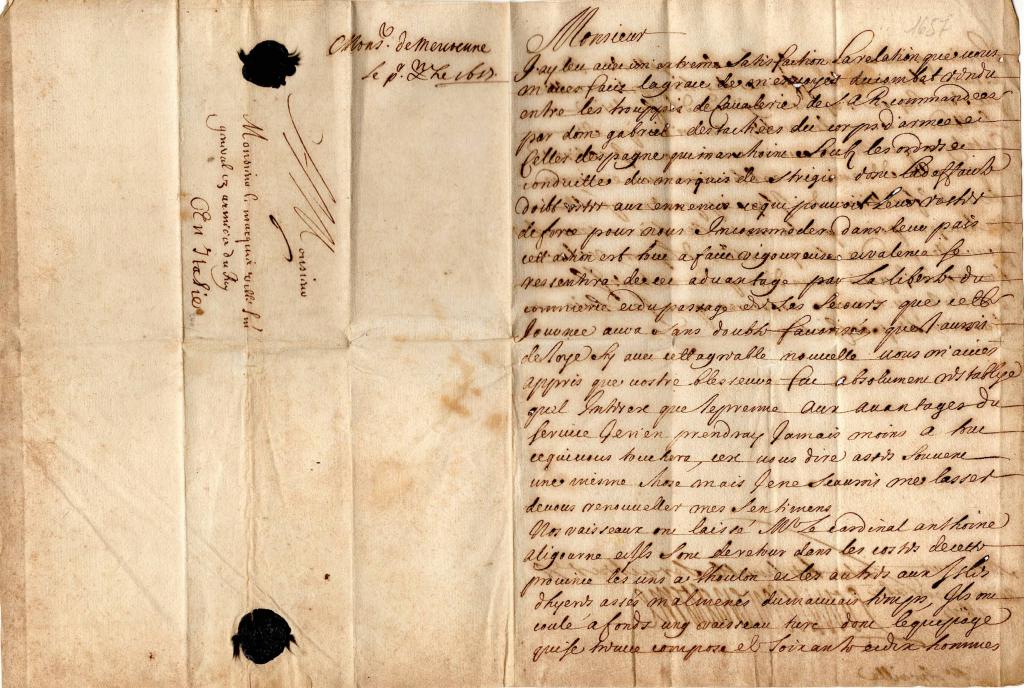 1657
Mons.r de Mercoeune
le p.r X.bre 1657
A Monsieur
Monsieur le marquis ville lieut
general es armees du Roy
En Italie
Monsieur
J'ay leu avec un extreme satisfaction la relation que vous
m'aves faict la grace de m'envoyer du combat rendu
entre les trouppes de cavalerie de S A R commandees
par dom gabriel destachées du corps d'armee et
Celles despagne qui marchoint soubz les ordres et
conduitte du marquis de
doibt oster aux ennemis ce qui pouvoit leur rester
de force pour nous Incommoder dans leur pais
cett action est tout a faict vigoureuse et valence se
ressentira de cet advantage par la liberté du
commerce et du passage et des secours que cette
Jouvnee aura sans doubte favorisés, que J'aurois
de Joye sy avec cett agreable nouvelle vous m'avies
appris que vostre blesseure fut absolument restablye
quel Interest que Je prenne aux avantages du
service Je n'en prendray Jamais moins a tout
ce qui vous touchera, cest vous dire asses souvent
une mesme chose mais Je ne scaurois me lasser
de vous renouveller mes sentimens
Nos vaisseaux ont laissé Mr le cardinal anthoine
a ligourne et Ils sont de retour dans les costes de cette
province les uns a thoulon et les autres aux Isles
dhyeres assés malmenés du mauvais temps, Ils ont
coulé a fonds ung vaisseau turc dont lequipage
qui se trouve composé de soixante et dix hommes